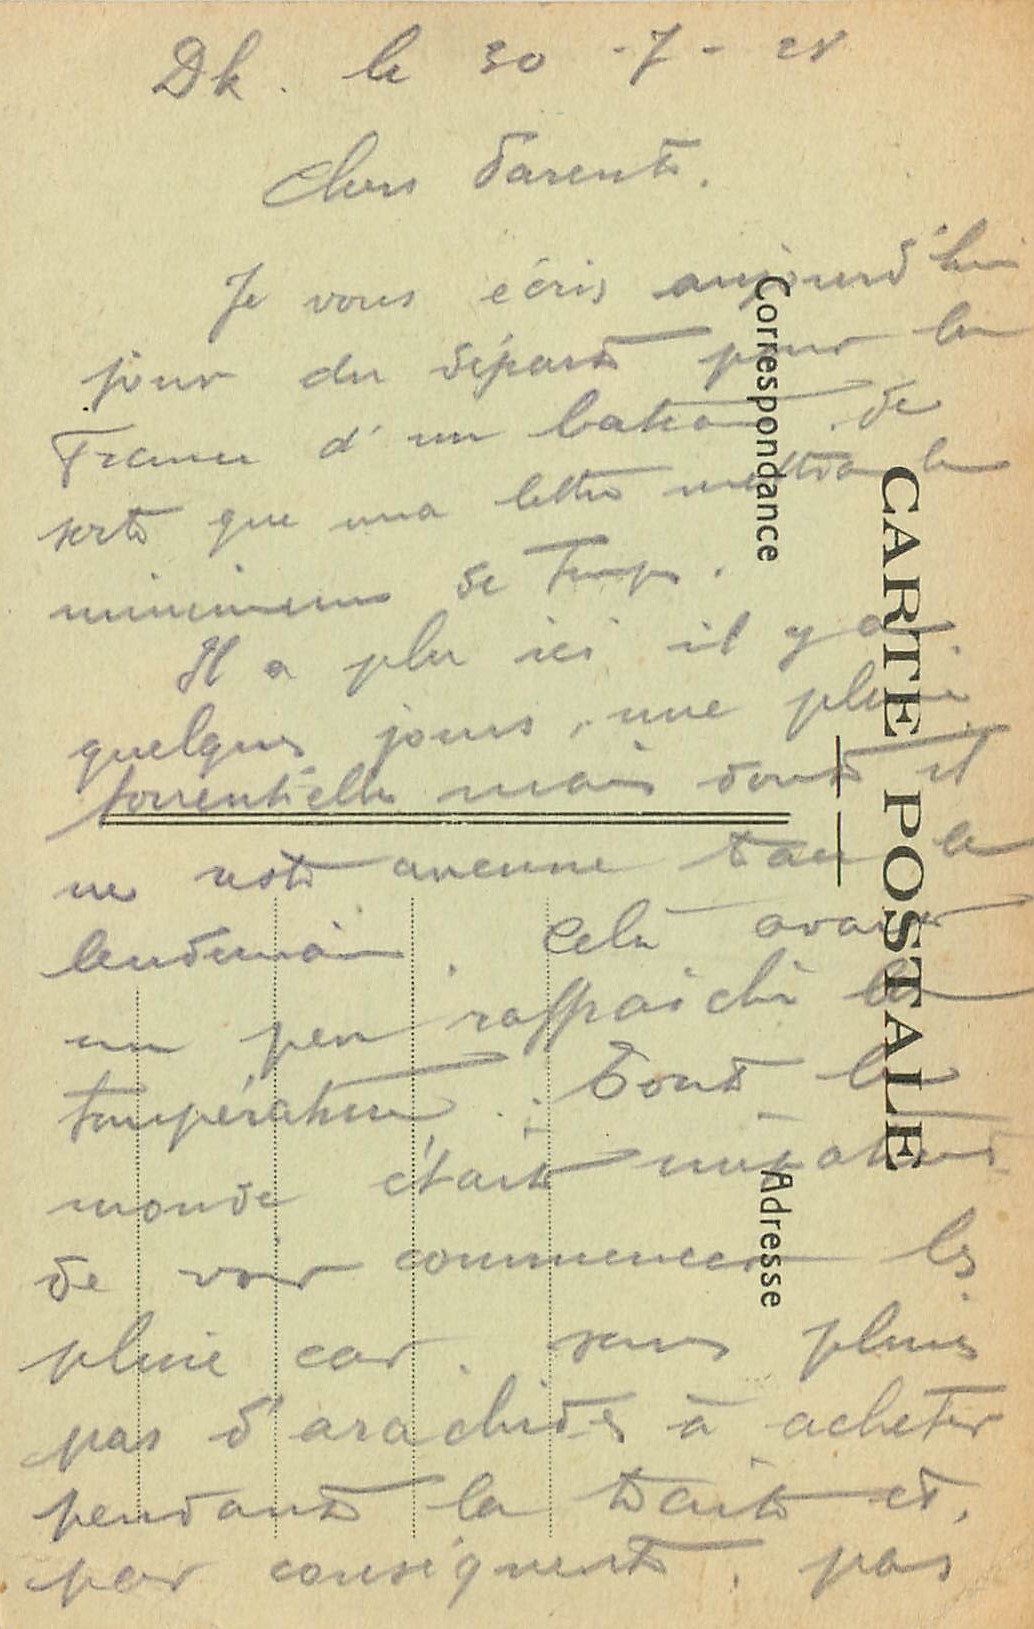 Dk. le 30-7-28
Chers Parents.
Je vous écris aujourd'hui
jour du départ pour la
France d'un bateau. de
sorte que ma lettre mettra le
minimum de temps.
Il a plu ici il y a
quelques jours, une pluie
torrentielle mais dont il
ne reste aucune trace le
lendemain. Cela avait
un peu raffraichi la
température. Tout le
monde était impatient
de voir commencer les
pluie car. sans pluies
pas d'arachides à acheter
pendant la traite et,
par conséquent, pas
CARTE POSTALE
Correspondance
Adresse